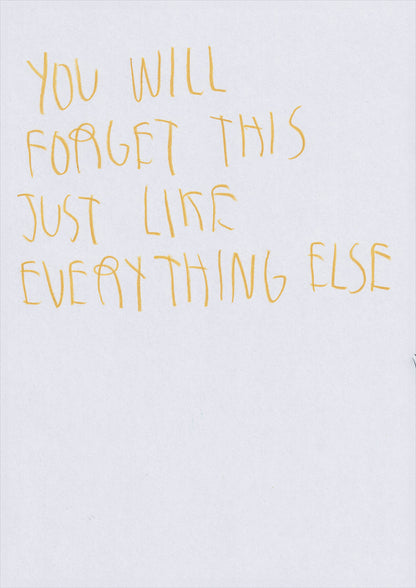 YOU WILL
FORGET THIS
JUST LIKE
EVERYTHING ELSE